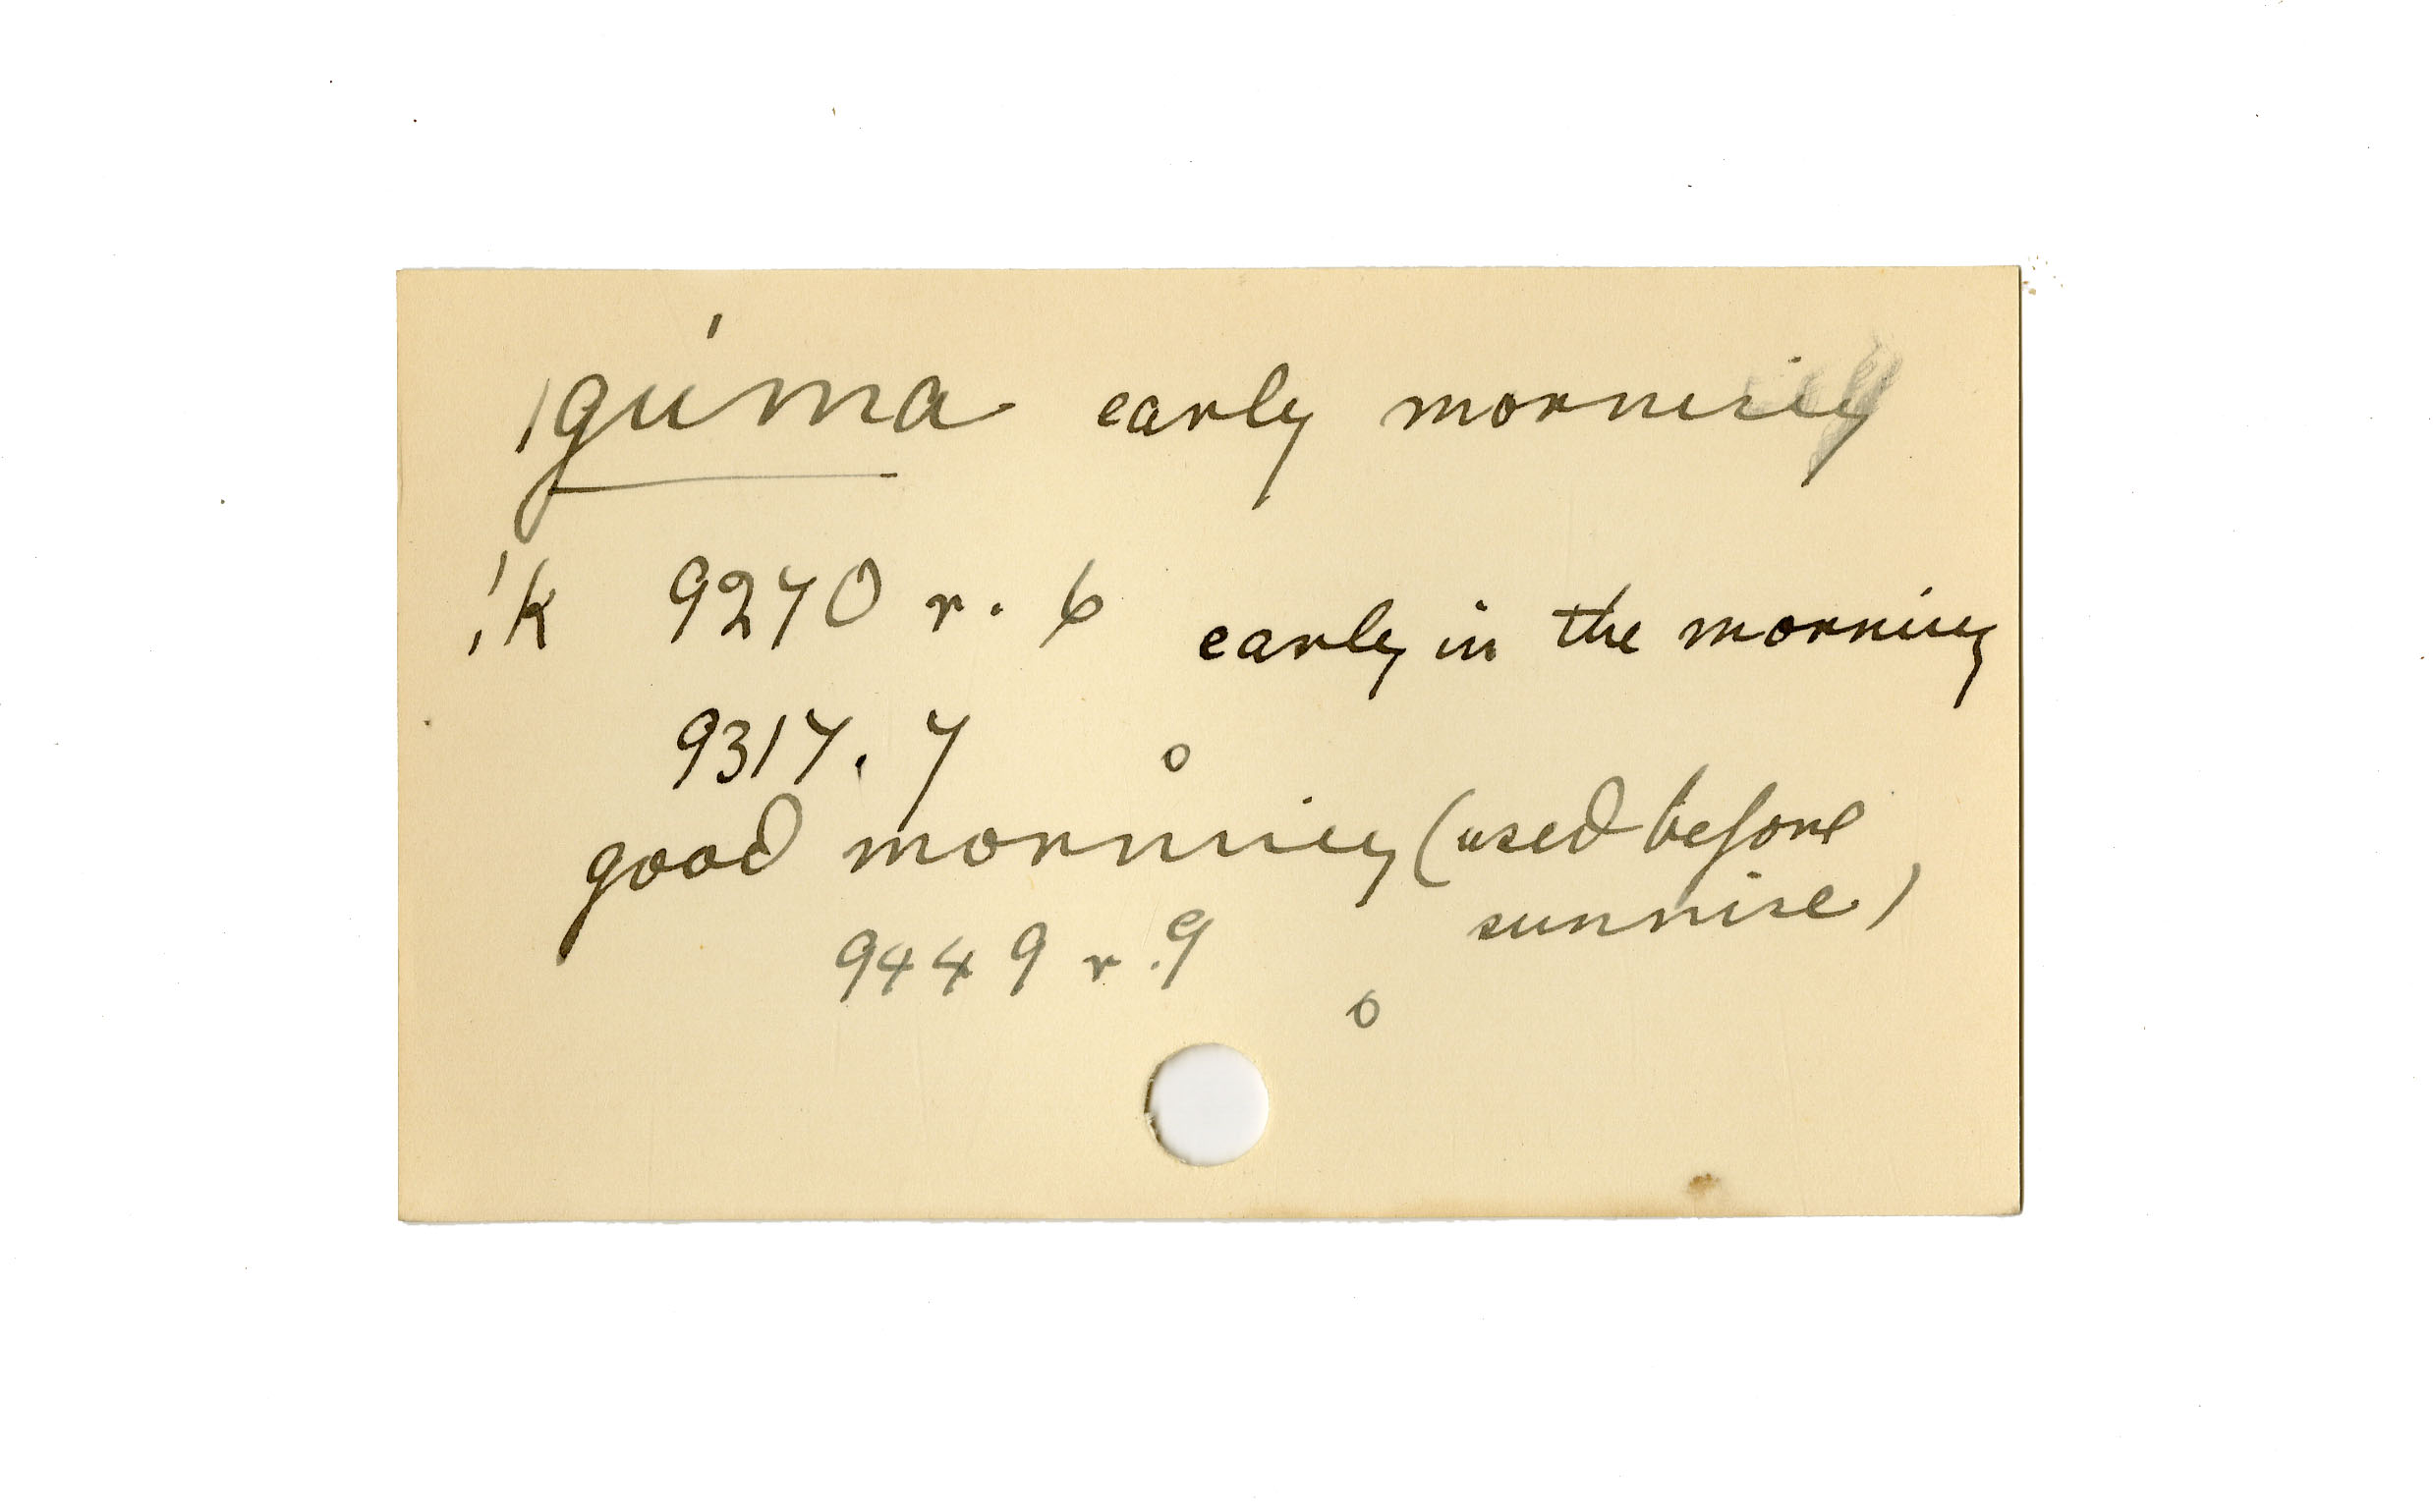 |gúma early morning
!k 9270 r. 6 early in the morning
9317. 7 o
good morning (used before
sunrise)
9449 r. 9
o